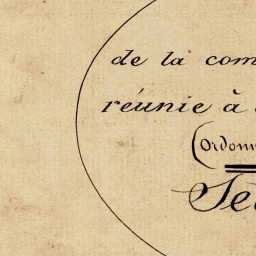 de la com
réunie à
(Ordonn
Se